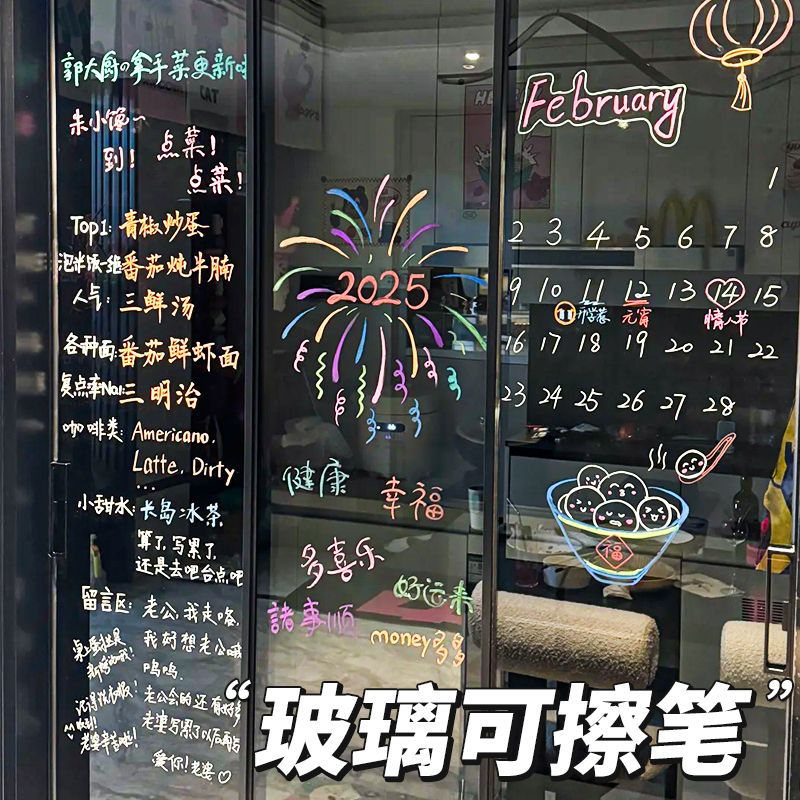 郭大厨の拿手菜更新啦
朱小馋~
到! 点菜!
点菜!
Top1: 青椒炒蛋
泡米饭一绝 番茄炖牛腩
人气: 三鲜汤
各种面: 番茄鲜虾面
复点率No1: 三明治
咖啡类: Americano,
Latte, Dirty
...
小甜水: 长岛冰茶,
算了,写累了,
还是去吧台点,吧
留言区: 老公,我走咯,
我好想老公哦
呜呜,
老公会的还有好多
老婆写累了以后再写
爱你!老婆♡
老婆辛苦啦!
2025
健康
幸福
多喜乐
好运来
諸事順
money多多
February
1
2 3 4 5 6 7 8
9 10 11 12 13 14 15
元宵
情人节
16 17 18 19 20 21 22
23 24 25 26 27 28
福
“玻璃可擦笔”